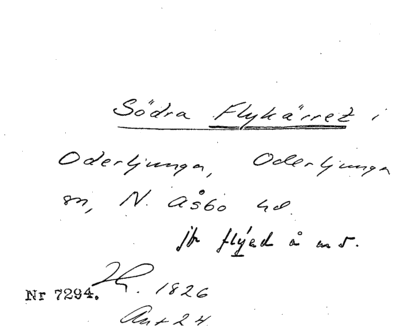 Södra Flykärret i
Oderljunga, Oderljunga
sn, N. Åsbo hd.
jfr flyed å m 5.
Nr 7294. 1826
Ant 24